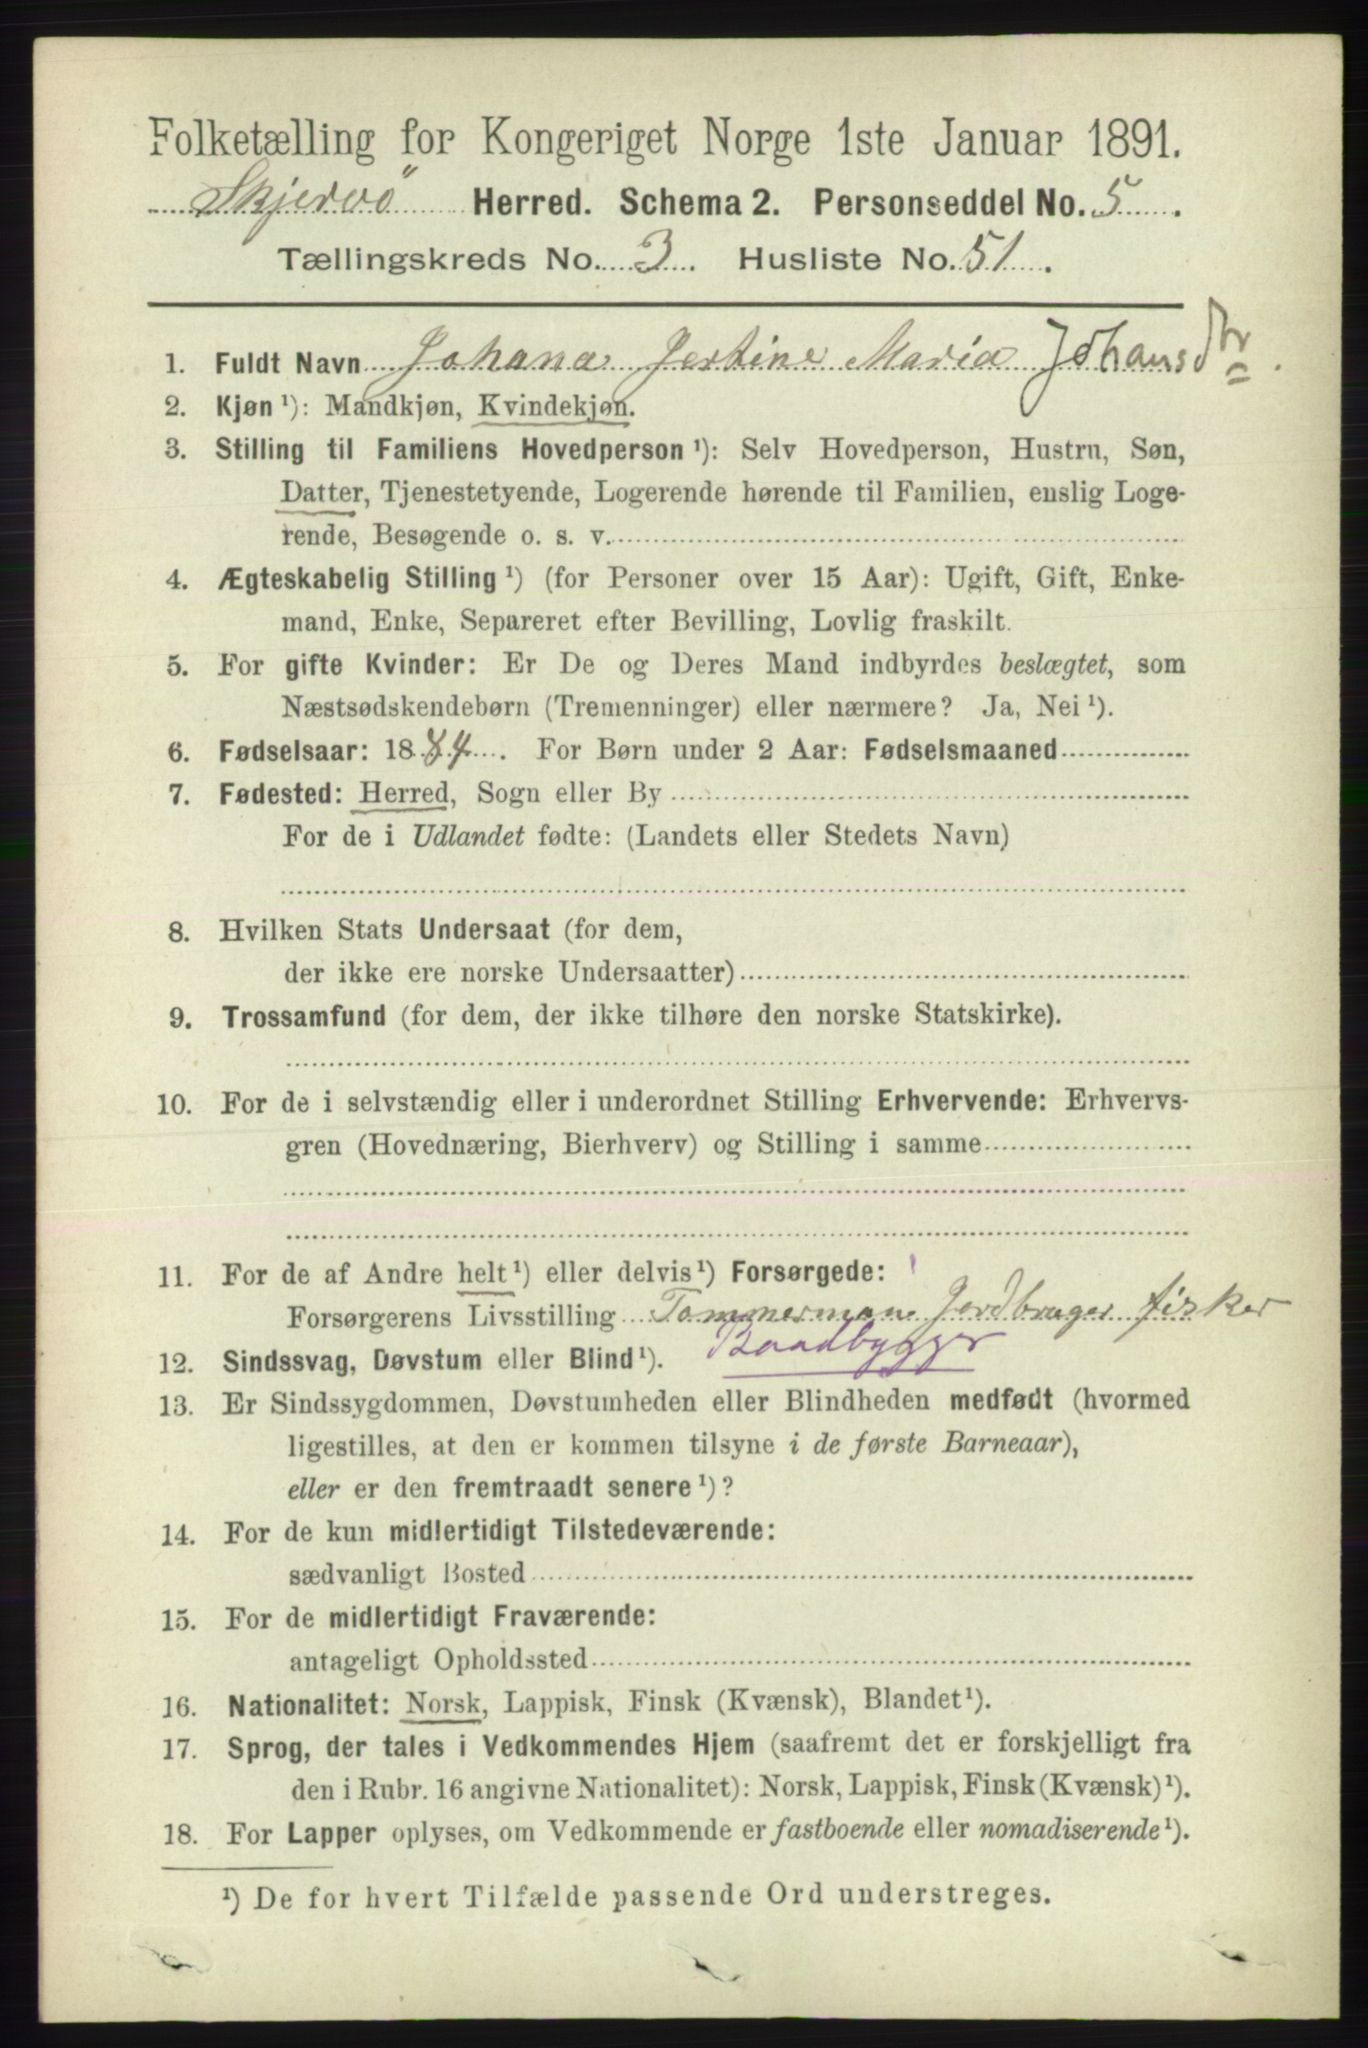 Folketælling for Kongeriget Norge 1ste Januar 1891.
Skjervö Herred. Schema 2. Personseddel No. 5.
Tællingskreds No. 3. Husliste No. 51.
1. Fuldt Navn Johana Jertine Maria Johansdtr.
2. Kjøn ¹): Mandkjøn, Kvindekjøn.
3. Stilling til Familiens Hovedperson ¹): Selv Hovedperson, Hustru, Søn,
Datter, Tjenestetyende, Logerende hørende til Familien, enslig Loge-
rende, Besøgende o. s. v.
4. Ægteskabelig Stilling ¹) (for Personer over 15 Aar): Ugift, Gift, Enke-
mand, Enke, Separeret efter Bevilling, Lovlig fraskilt.
5. For gifte Kvinder: Er De og Deres Mand indbyrdes beslægtet, som
Næstsødskendebørn (Tremenninger) eller nærmere? Ja, Nei ¹).
6. Fødselsaar: 1884. For Børn under 2 Aar: Fødselsmaaned
7. Fødested: Herred, Sogn eller By
For de i Udlandet fødte: (Landets eller Stedets Navn)
8. Hvilken Stats Undersaat (for dem,
der ikke ere norske Undersaatter)
9. Trossamfund (for dem, der ikke tilhøre den norske Statskirke).
10. For de i selvstændig eller i underordnet Stilling Erhvervende: Erhvervs-
gren (Hovednæring, Bierhverv) og Stilling i samme
11. For de af Andre helt ¹) eller delvis ¹) Forsørgede:
Forsørgerens Livsstilling Tømmerman Jordbruger fisker
Baadbygger
12. Sindssvag, Døvstum eller Blind ¹).
13. Er Sindssygdommen, Døvstumheden eller Blindheden medfødt (hvormed
ligestilles, at den er kommen tilsyne i de første Barneaar),
eller er den fremtraadt senere ¹)?
14. For de kun midlertidigt Tilstedeværende:
sædvanligt Bosted
15. For de midlertidigt Fraværende:
antageligt Opholdssted
16. Nationalitet: Norsk, Lappisk, Finsk (Kvænsk), Blandet ¹).
17. Sprog, der tales i Vedkommendes Hjem (saafremt det er forskjelligt fra
den i Rubr. 16 angivne Nationalitet): Norsk, Lappisk, Finsk (Kvænsk) ¹).
18. For Lapper oplyses, om Vedkommende er fastboende eller nomadiserende ¹).
¹) De for hvert Tilfælde passende Ord understreges.